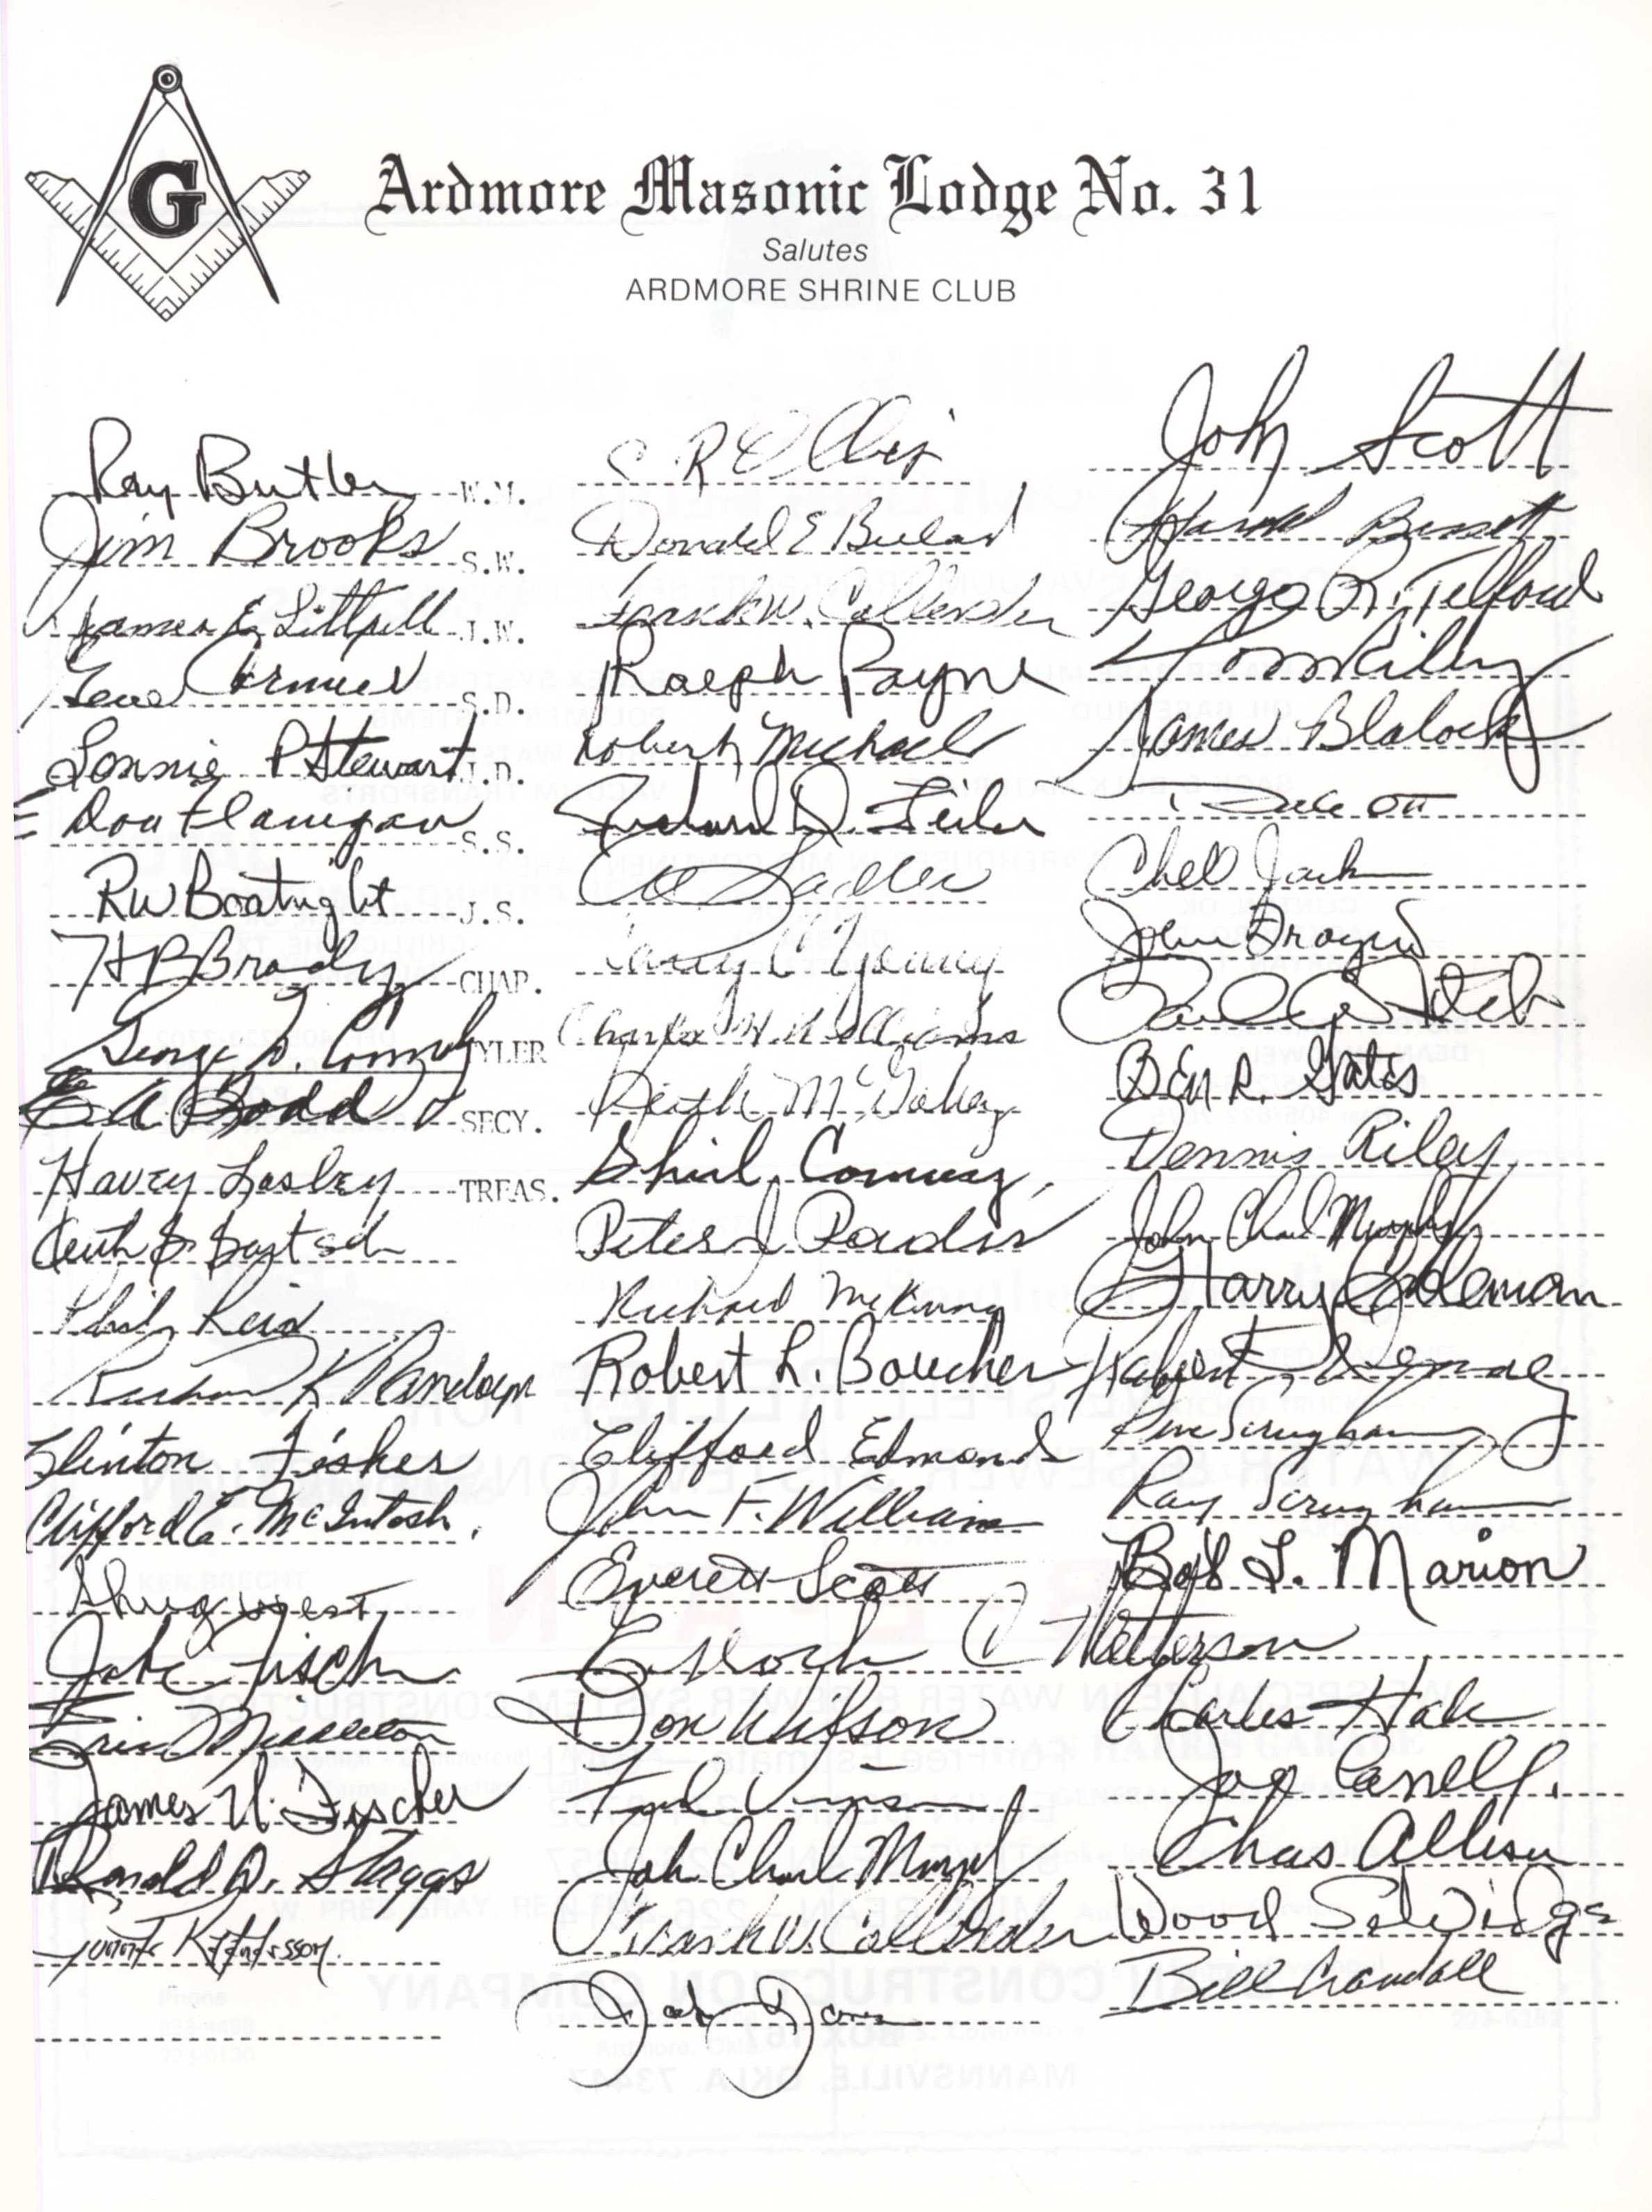 G
Ardmore Masonic Lodge No. 31
Salutes
ARDMORE SHRINE CLUB
Ray Butler W.M.
Jim Brooks S.W.
James E. Littrell J.W.
Gene S.D.
Lonnie P Stewart J.D.
Don Flanigan S.S.
RW Boatright J.S.
HB Brady CHAP.
George TYLER
E A Dodd SECY.
Havry Losley TREAS.
Keith B. Bartsch
Phil Reid
K Randolph
Clinton Fisher
Clifford E. McIntosh.
Shug West
Jake Fischer
Middleton
James U. Fischer
Ronald D. Staggs
S R Ellis
Donald E
Frank W. Callender
Ralph Payne
Robert Michael
Richard D.
Sadler
Larry C Young
Charles H. Williams
Keith McGahey
Phil
Peter J
Richard McKinney
Robert L. Boucher
Clifford Edmonds
John F. Williams
Everett Scott
Enoch C Netterson
Don Wilson
Vinson
John Charles Murphy
Frank W. Callender
Jack Jones
John Scott
Harold Bassett
George R. Telford
Tom Riley
James Blalock
Dale Ott
Chell Jack
John
Paul
Ben R. Gates
Dennis Riley
John Charles Murphy
Harry Coleman
Robert
Scrugham
Ray Scrugham
Bob L. Marion
Charles Hale
Joe
Chas Allison
Wood Selvidge
Bill Crandall